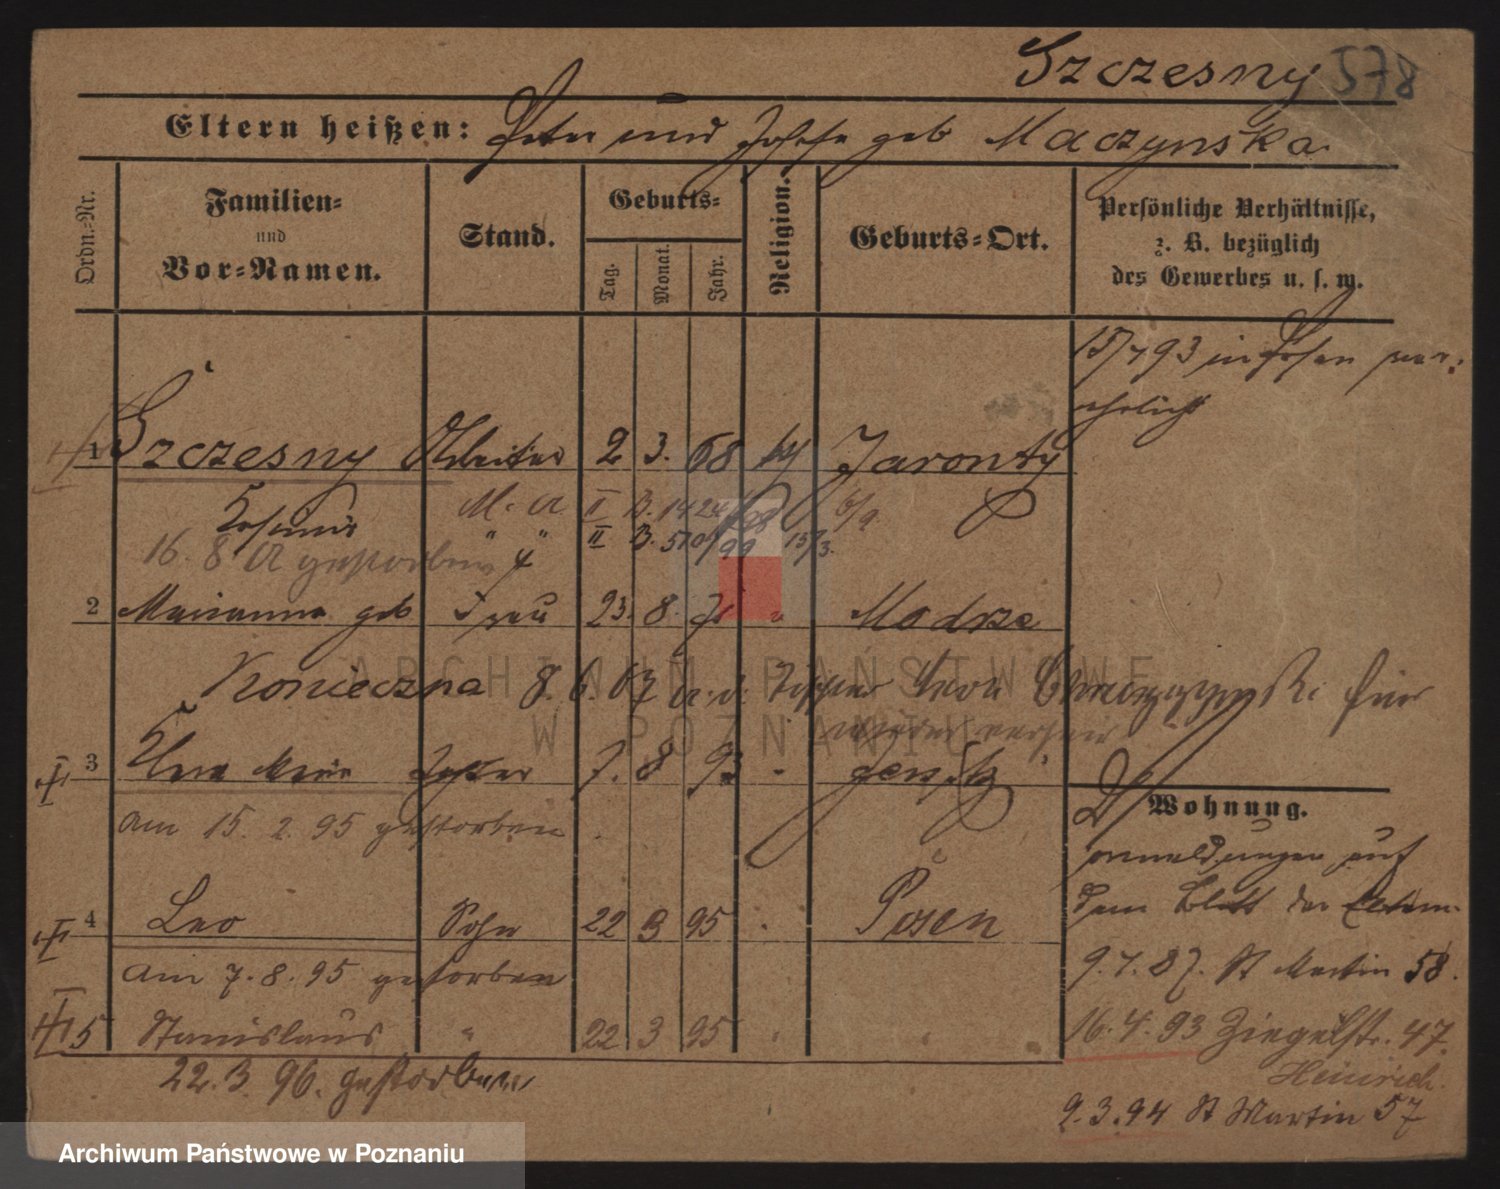 Szczesny 578
Eltern heißen: Peter und Josefa geb Maczynska.
Ordn.-Nr.
Familien-
und
Vor-Namen.
Stand.
Geburts-
Tag.
Monat.
Jahr.
Religion.
Geburts-Ort.
Persönliche Verhältnisse,
z. B. bezüglich
des Gewerbes u. s. w.
15/7 93 in Posen ver-
ehelicht
1 Szczesny Arbeiter 2 3. 68
M. A II B. 1424/98 6/9.
" " II B. 510/99 13/3.
16. 8 gestorben
2 Marianna geb Frau 23. 8. " Modrze
Konieczna 8. 6. 67
3 Tochter 7. 8 93 Jersitz
am 15. 2. 95 gestorben
Wohnung.
auf
dem Blatt der Eltern.
4 Leo Sohn 22 3 95 Posen
am 7. 8. 95 gestorben
9. 7. 87. St Martin 58.
5 Stanislaus " 22 3 95
16. 4. 93 Ziegelstr. 47.
22. 3. 96. gestorben
Heinrich.
2. 3. 94 St Martin 57
ARCHIWUM PAŃSTWOWE
W POZNANIU
Archiwum Państwowe w Poznaniu